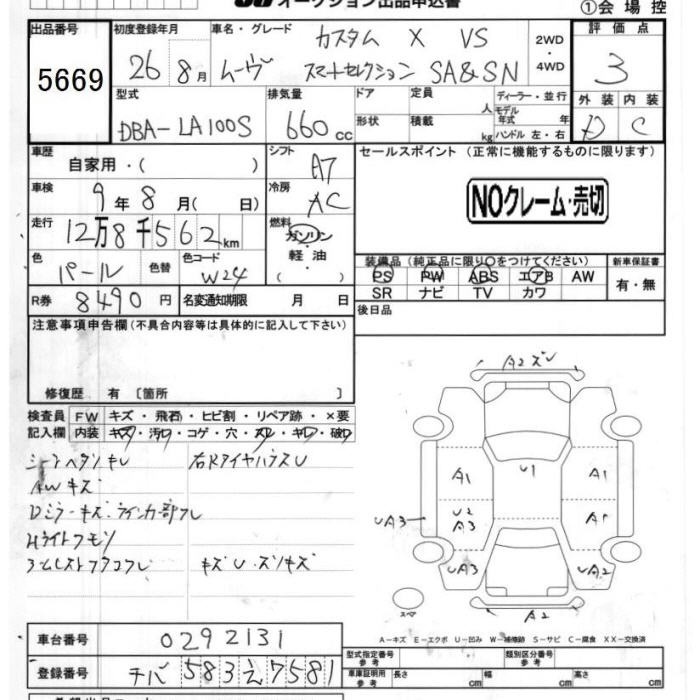 オークション出品申込書
①会場控
出品番号
5669
初度登録年月
26 8月
車名・グレード
カスタム X VS
ムーヴ スマートセレクション SA&SN
2WD
・
4WD
評価点
3
外装 内装
D C
型式
DBA-LA100S
排気量
660cc
ドア
形状
定員
人
積載
kg
ディーラー・並行
モデル
年式 年
ハンドル 左・右
車歴
自家用・( )
シフト
A7
車検
9年 8月( 日)
冷房
AC
走行
12万8千562km
燃料
ガソリン
・
軽油
( )
色
パール
色替
色コード
W24
R券
8490円
名変通知期限 月 日
セールスポイント (正常に機能するものに限ります)
NOクレーム・売切
装備品(純正品に限り○をつけてください)
PS PW ABS エアB AW
SR ナビ TV カワ
新車保証書
有・無
後日品
注意事項申告欄(不具合内容等は具体的に記入して下さい)
修復歴 有 〔箇所 〕
検査員
記入欄
FW キズ・飛石・ヒビ割・リペア跡・×要
内装 キズ・汚れ・コゲ・穴・スレ・キレ・破れ
AWキズ
Dミラーキズ
キズU・スリキズ
A2
U1
A1
A1
U2
A3
A1
UA3
UA3
UA2
A2
A-キズ E-エクボ U-凹み W-補修跡 S-サビ C-腐食 XX-交換済
車台番号
0292131
登録番号
チバ 583 え 7581
型式指定番号
参考
類別区分番号
参考
車庫証明用
参考
長さ cm
幅 cm
高さ cm